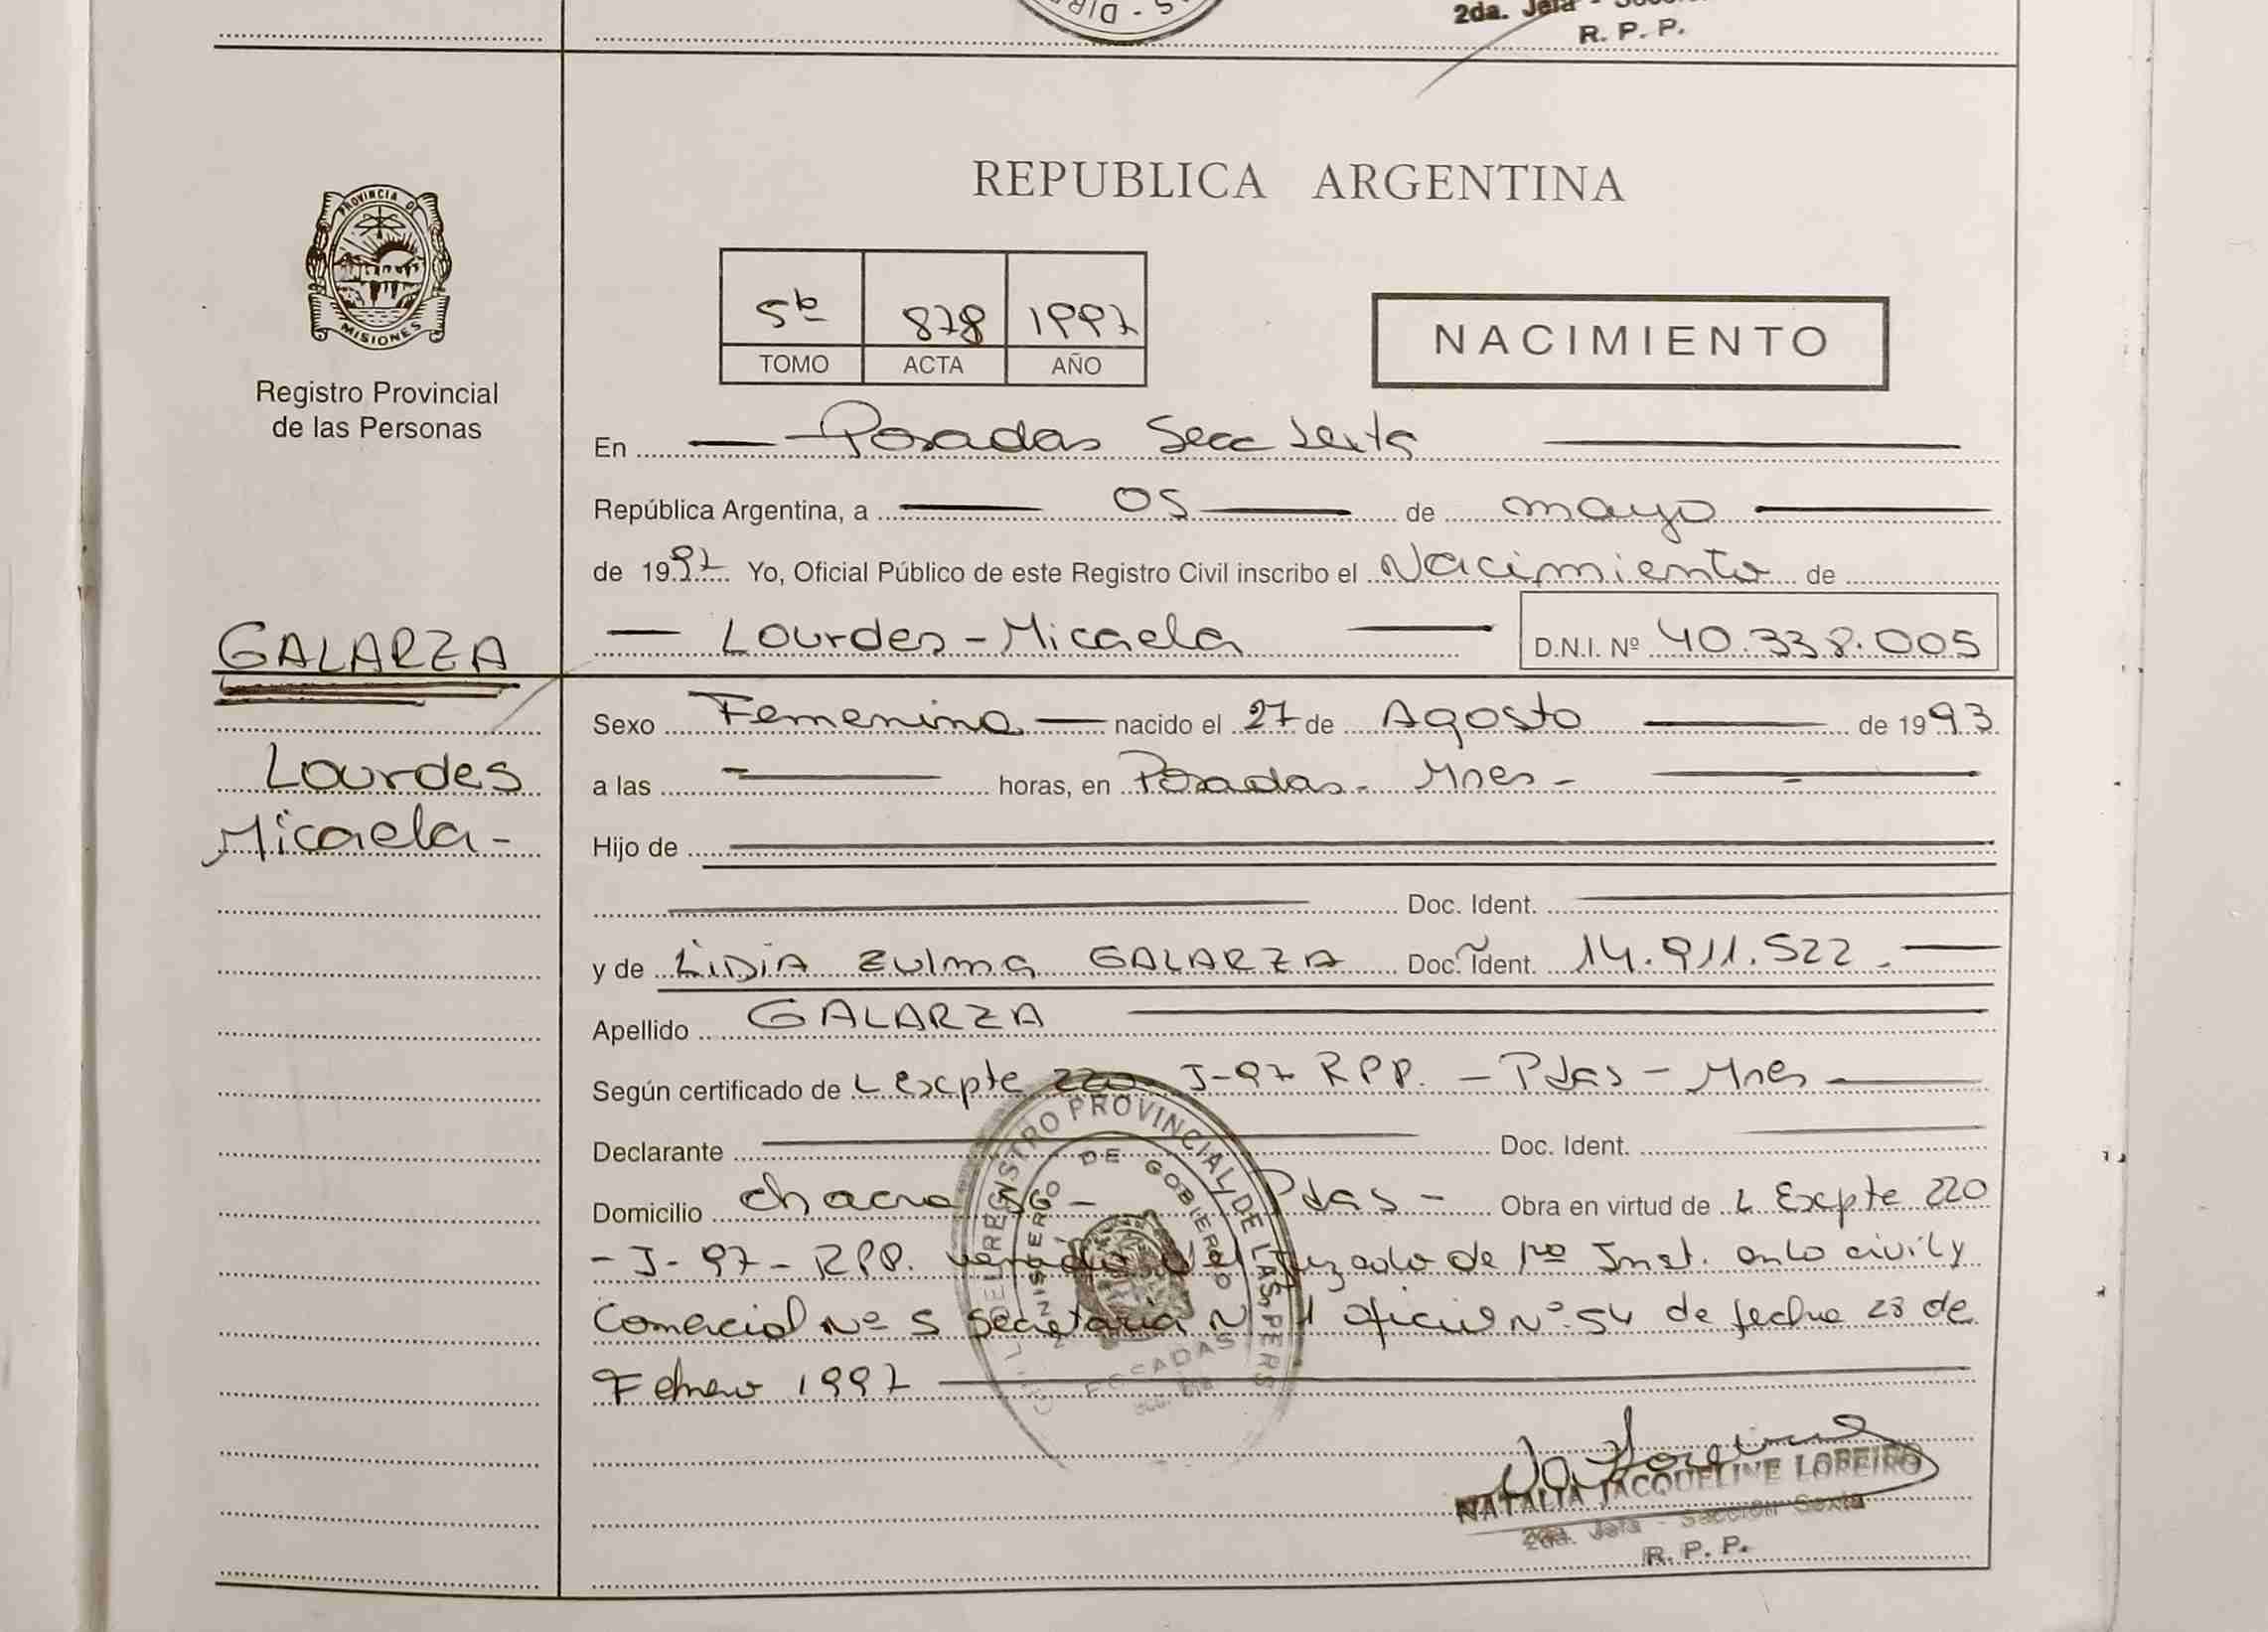 DIRE
2da. Jefa - Secc
R. P. P.
PROVINCIA DE
MISIONES
Registro Provincial
de las Personas
REPUBLICA ARGENTINA
5to 878 1997
TOMO ACTA AÑO
NACIMIENTO
En Posadas Secc Sexta
República Argentina, a 05 de mayo
de 1997 Yo, Oficial Público de este Registro Civil inscribo el Nacimiento de
Lourdes - Micaela D.N.I. Nº 40.338.005
GALARZA
Lourdes
Micaela -
Sexo Femenino nacido el 27 de Agosto de 1993
a las horas, en Posadas - Mnes -
Hijo de
Doc. Ident.
y de LiDiA Zulma GALARZA Doc. Ident. 14.911.522.-
Apellido GALARZA
Según certificado de L Excpte 220 J-97 RPP. - Pdas - Mnes -
Declarante Doc. Ident.
Domicilio chacra 56 - Pdas - Obra en virtud de L Excpte 220
- J - 97 - RPP. venido del Juzgado de 1ro Inst. en lo civil y
Comercial Nº 5 Secretaria Nº 1 oficio Nº 54 de fecha 28 de
Febrero 1997
DEL REGISTRO PROVINCIAL DE LAS PERS
MINISTERIO DE GOBIERNO
POSADAS
NATALIA JACQUELINE LOREIRO
2da. Jefa - Sección Sexta
R. P. P.